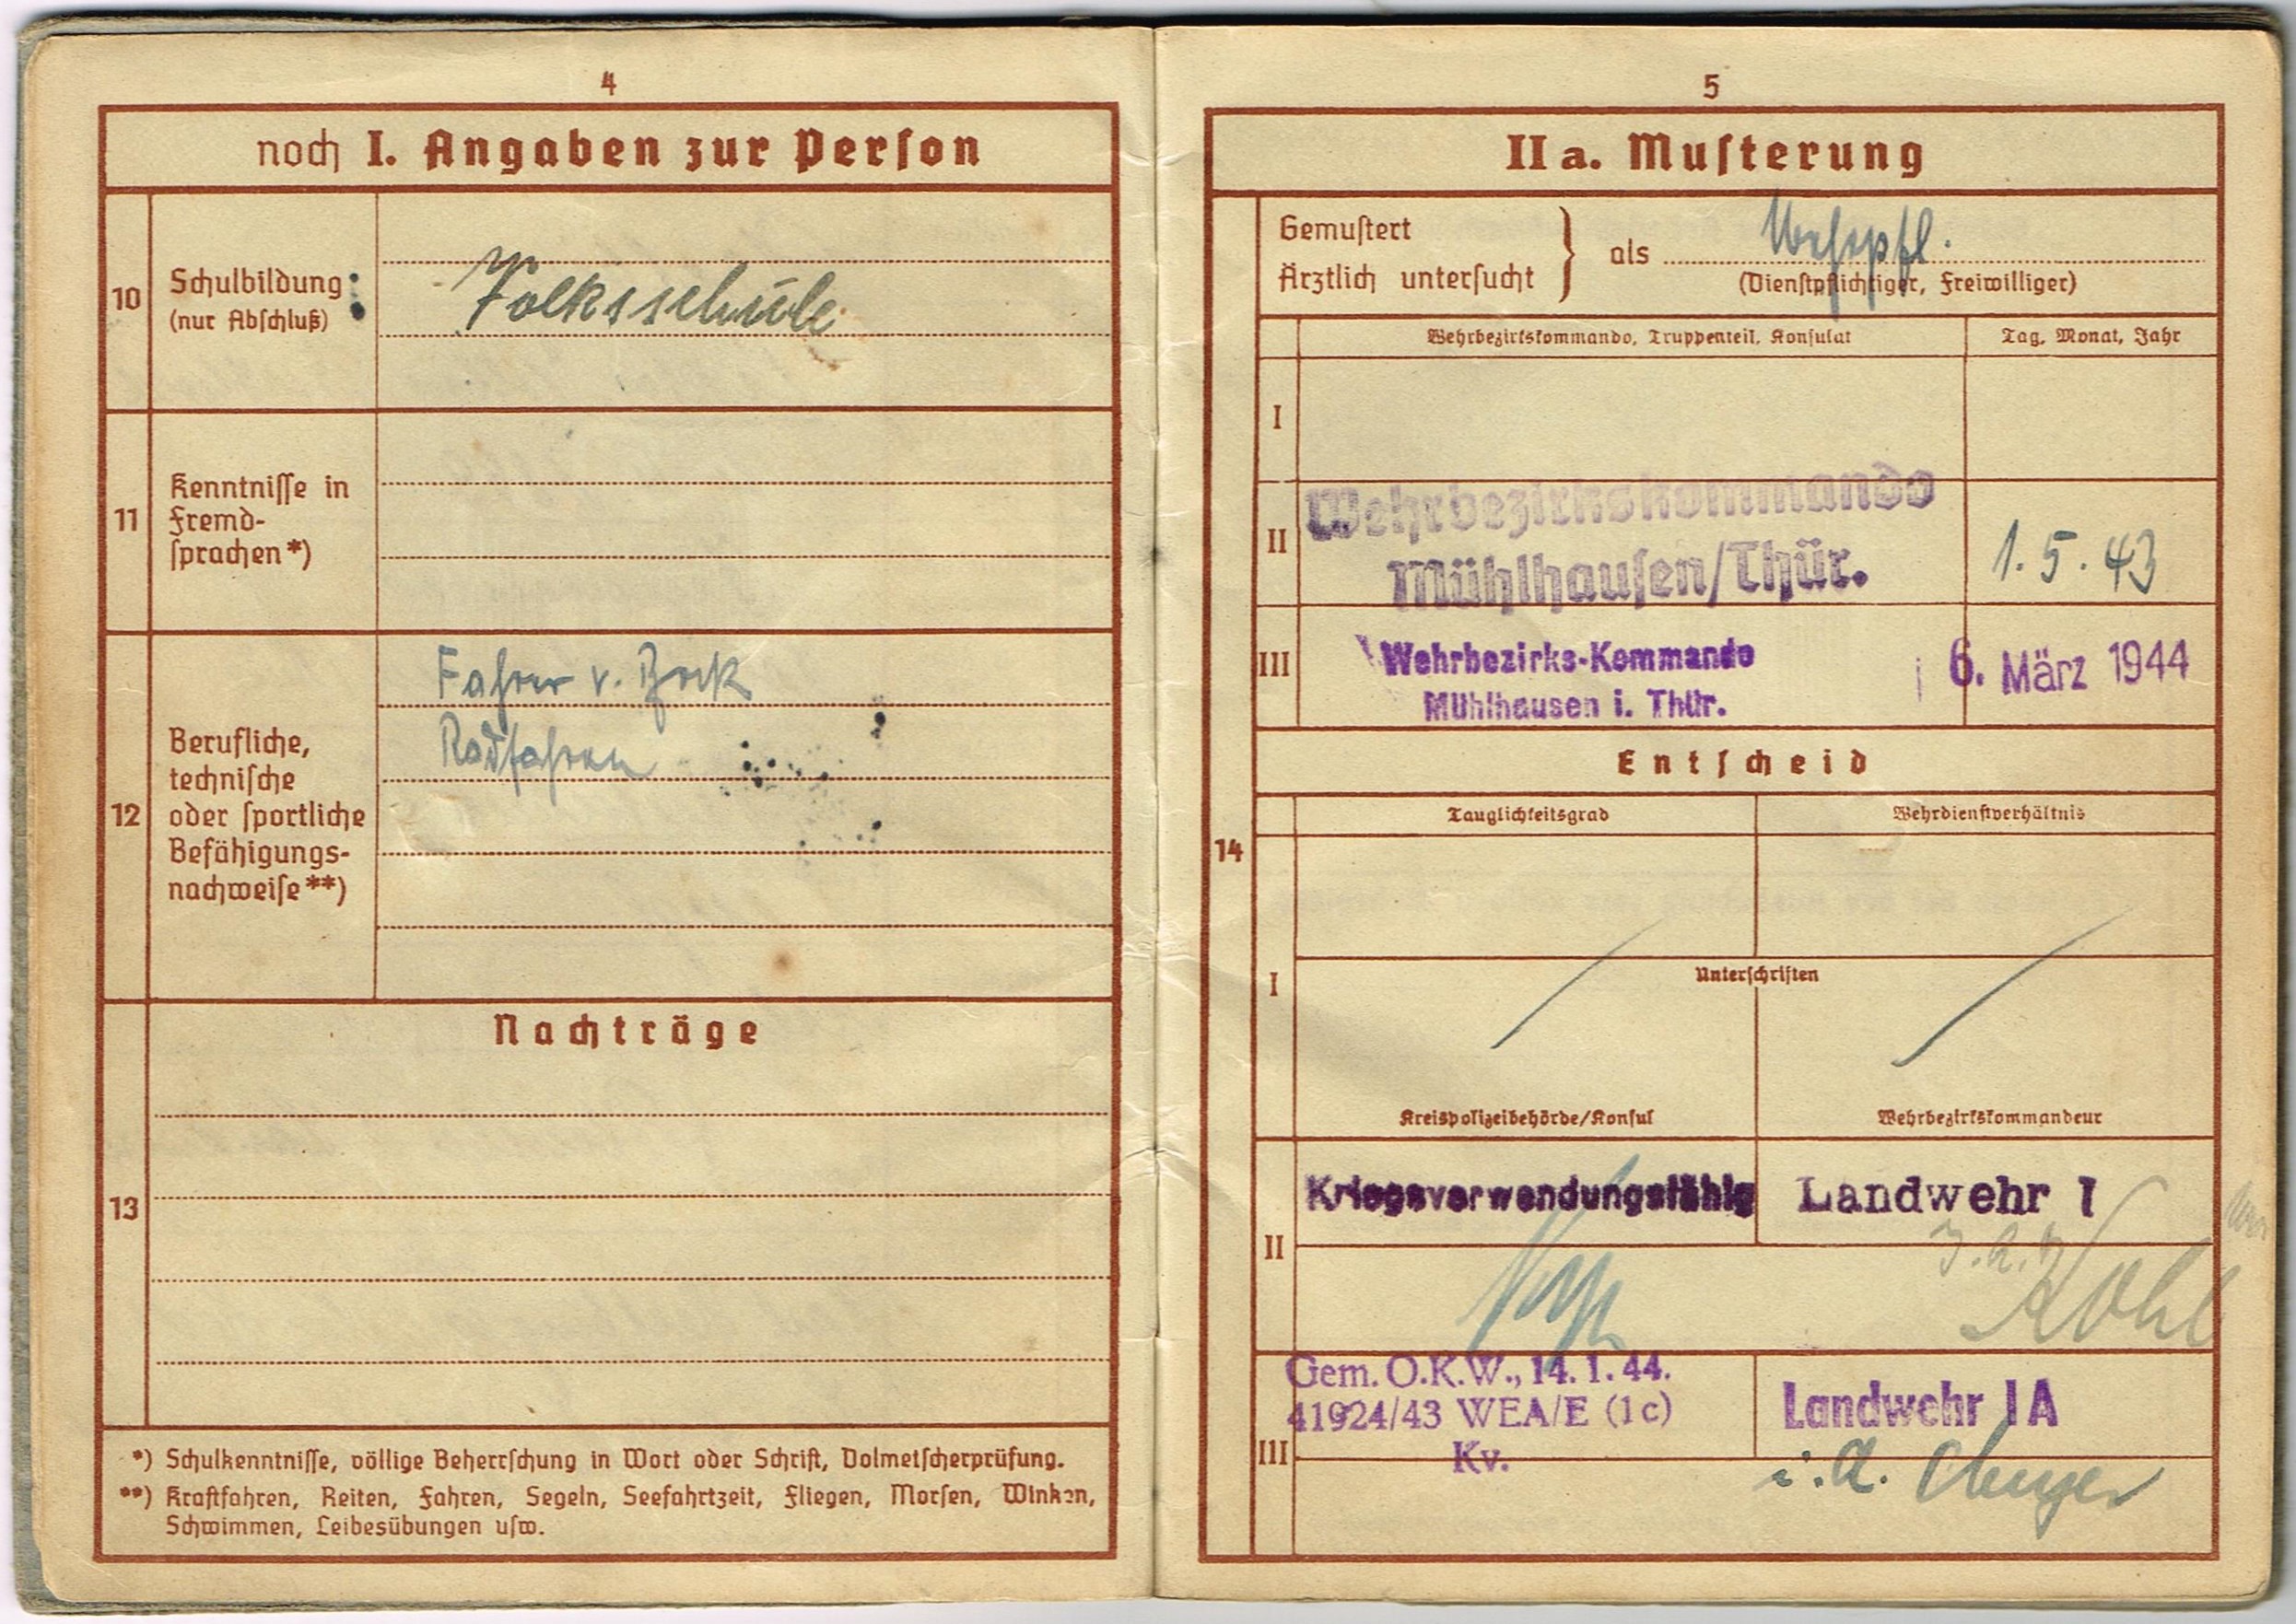 4
noch I. Angaben zur Person
10
Schulbildung:
(nur Abschluß)
Volksschule
11
Kenntnisse in
Fremd-
sprachen*)
12
Berufliche,
technische
oder sportliche
Befähigungs-
nachweise**)
Fahrer v. Bock
Radfahren
Nachträge
13
*) Schulkenntnisse, völlige Beherrschung in Wort oder Schrift, Dolmetscherprüfung.
**) Kraftfahren, Reiten, Fahren, Segeln, Seefahrtzeit, Fliegen, Morsen, Winken,
Schwimmen, Leibesübungen usw.
5
IIa. Musterung
Gemustert
Ärztlich untersucht
als
(Dienstpflichtiger, Freiwilliger)
Wehrbezirkskommando, Truppenteil, Konsulat
Tag, Monat, Jahr
I
II
Wehrbezirkskommando
Mühlhausen/Thür.
1.5.43
III
Wehrbezirks-Kommando
Mühlhausen i. Thür.
6. März 1944
Entscheid
14
Tauglichkeitsgrad
Wehrdienstverhältnis
I
Unterschriften
Kreispolizeibehörde/Konsul
Wehrbezirkskommandeur
II
Kriegsverwendungsfähig
Landwehr I
Kohl
III
Gem. O.K.W., 14.1.44.
41924/43 WEA/E (1c)
Kv.
Landwehr IA
i.A.